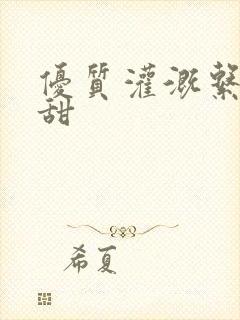 優質灌溉繫
甜
希夏